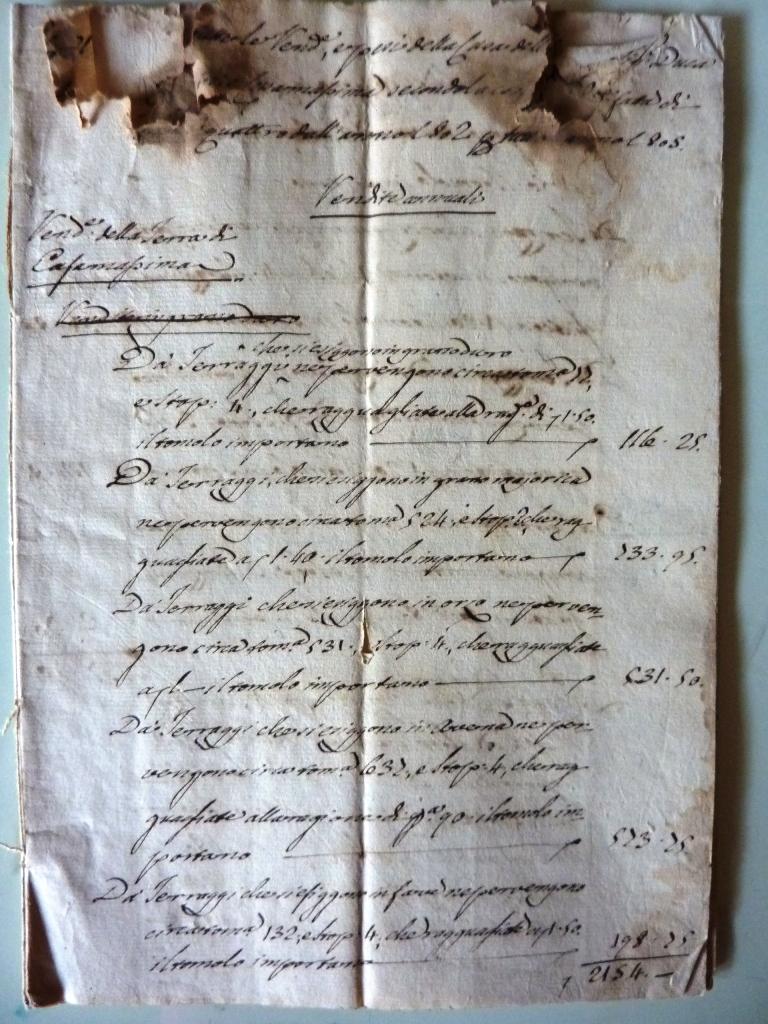 Vend.e, e pesi della Casa dell' Duca
Casamassima secondo la fatta di
quattro dall'anno 1802 p tutto anno 1805.
Rendite annuali
Rend.e della Terra di
Casamassima
che si esiggono in grano duro
Da Terraggi ne pervengono circa tom.a 77,
e stop: 4, che ragguagliate alla rag.e di 1.50.
il tomolo importano 116.25.
Da Terraggi, che si esiggono in grano majorica
ne pervengono circa tom.a 524, e stop: 2 che rag-
guagliate a 1.40. il tomolo importano 733.95.
Da Terraggi che si esiggono in orzo ne perven-
gono circa tom.a 531., e stop: 4, che ragguagliate
a 1 — il tomolo importano 531.50.
Da Terraggi che si esiggono in avena ne per-
vengono circa tom.a 637, e stop: 4, che rag-
guagliate alla ragione di g.na 90. il tomolo im-
portano 573.75
Da Terraggi che si esiggono in fave ne pervengono
circa tom.a 132, e stop: 4, che ragguagliate a 1.50.
il tomolo importano 198.75
2154.—